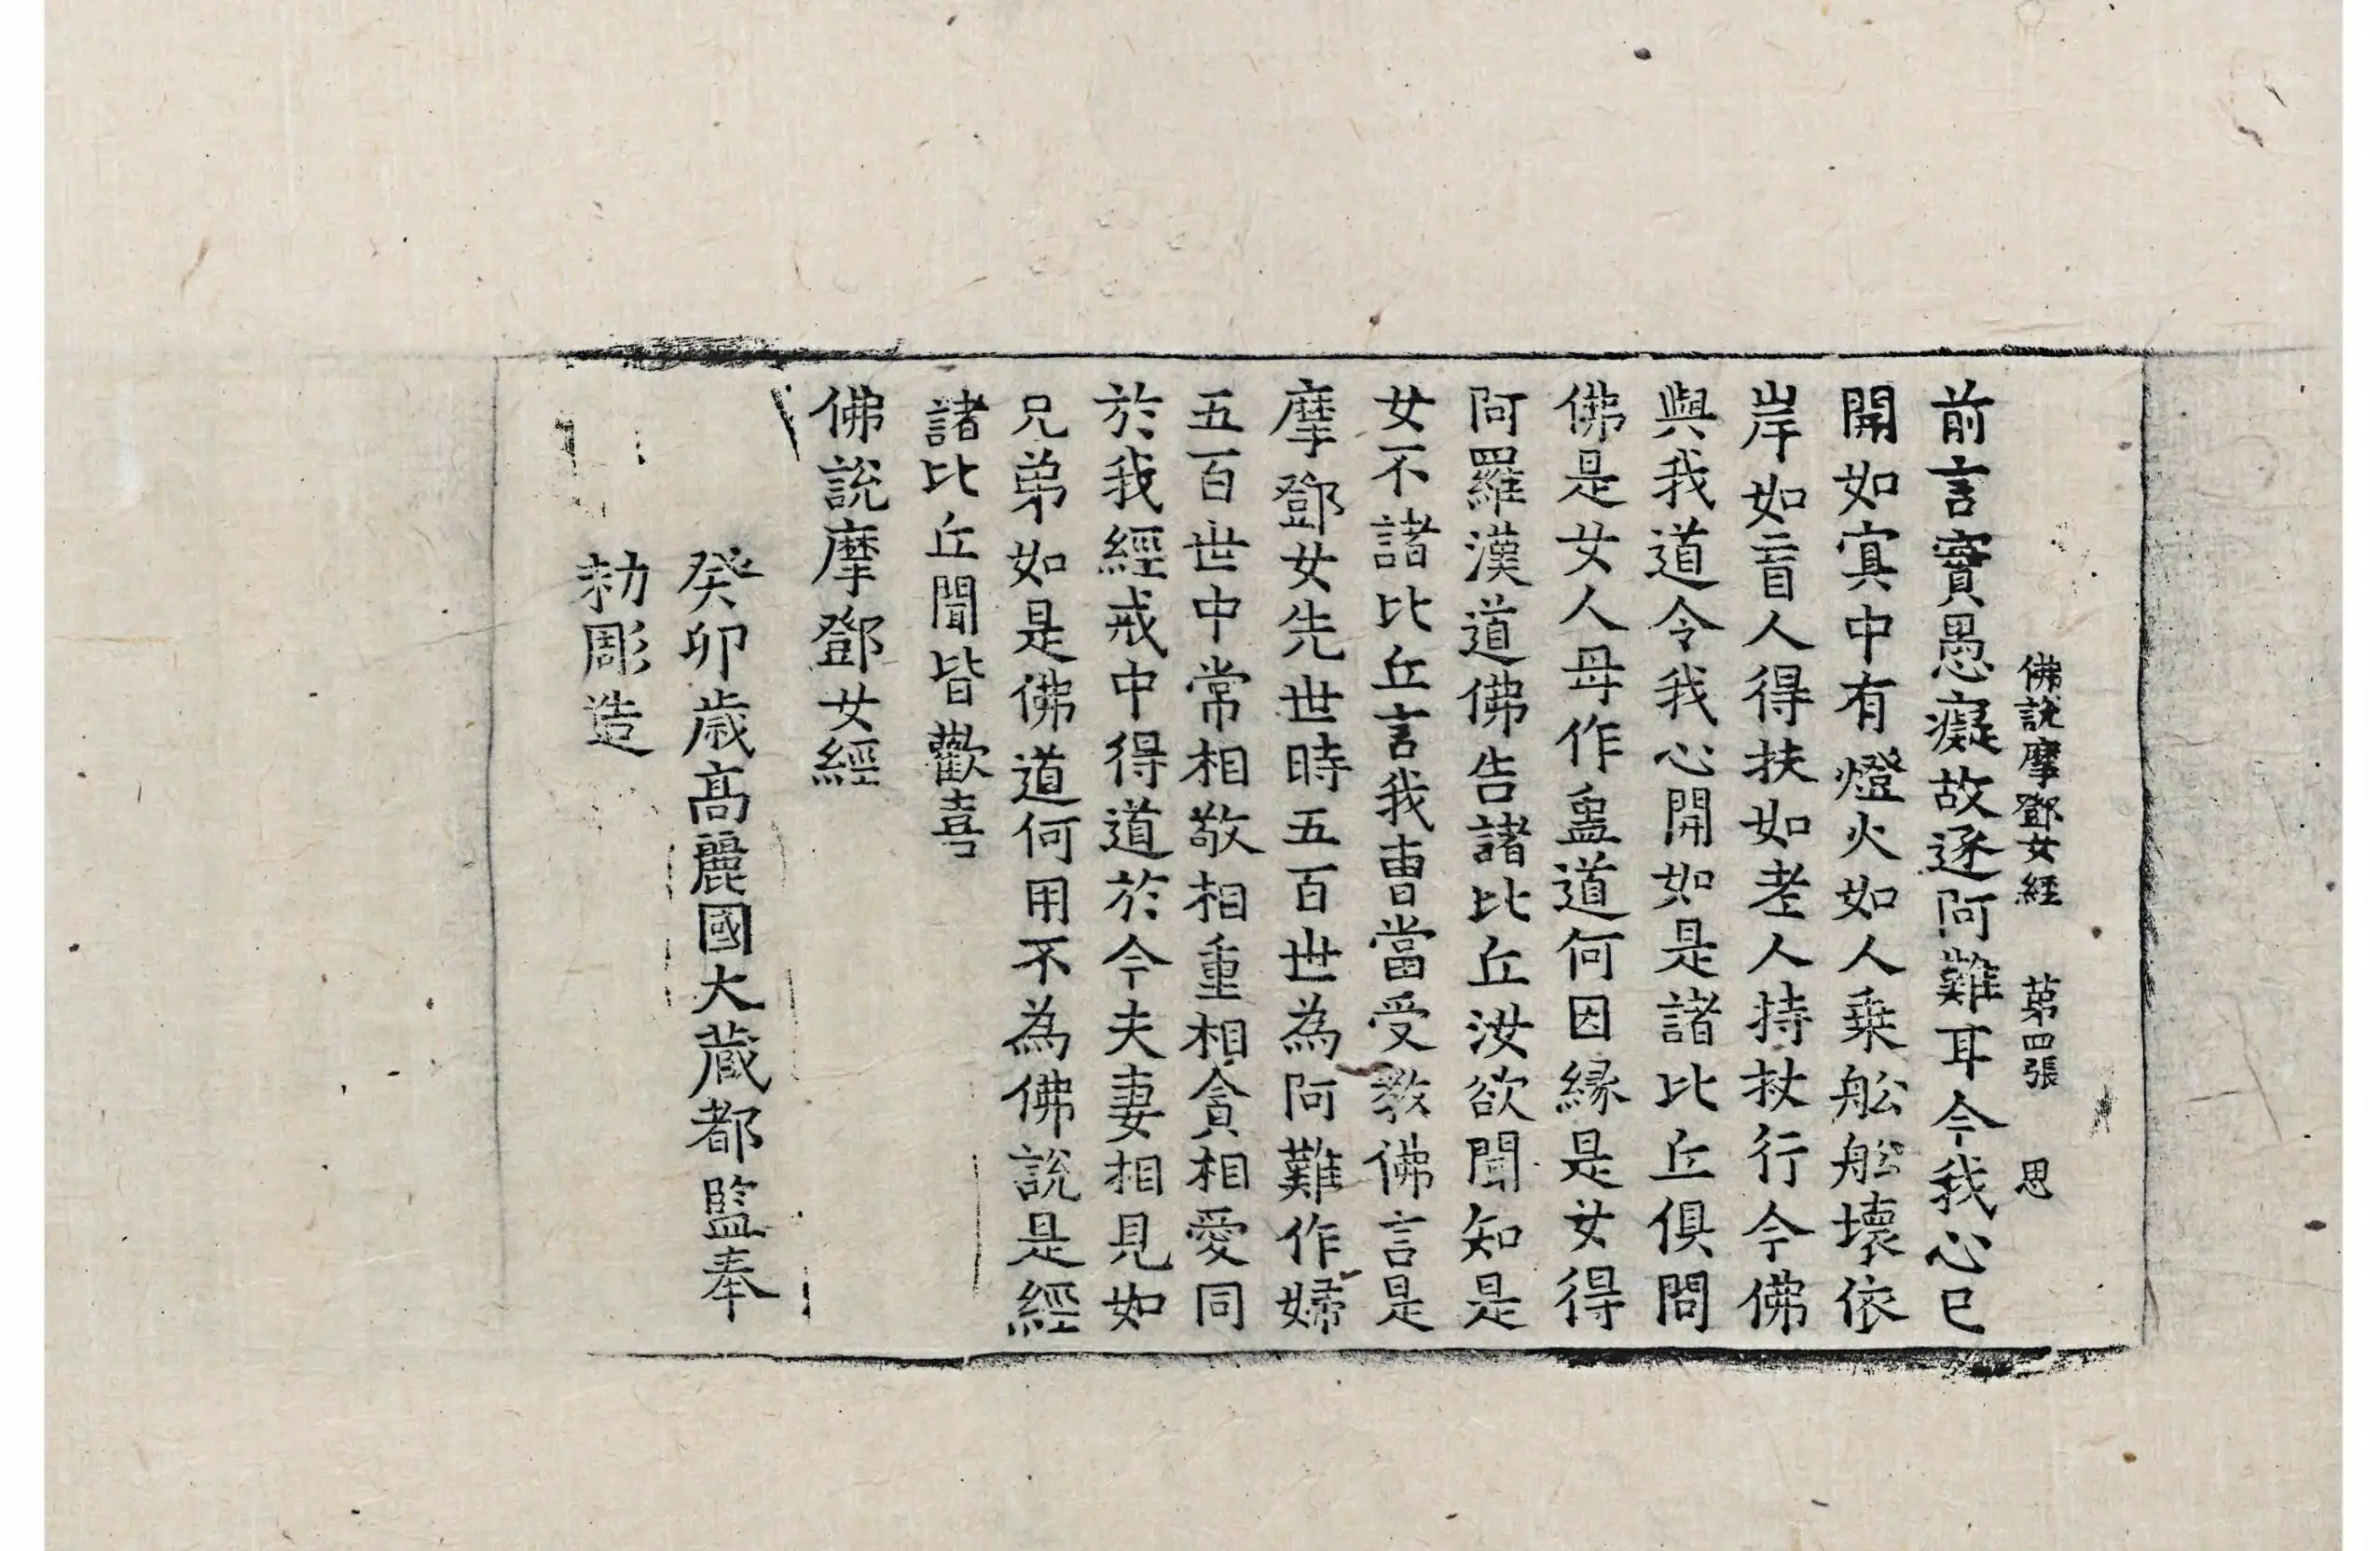 佛說摩鄧女經 第四張 思
前言實愚癡故逐阿難耳今我心已
開如寘中有燈火如人乗舩舩壞依
岸如盲人得扶如老人持杖行今佛
與我道令我心開如是諸比丘俱問
佛是女人母作蛊道何因縁是女得
阿羅漢道佛告諸比丘汝欲聞知是
女不諸比丘言我曹當受教佛言是
摩鄧女先世時五百世為阿難作婦
五百世中常相敬相重相貪相愛同
於我經戒中得道於今夫妻相見如
兄弟如是佛道何用不為佛說是經
諸比丘聞皆歡喜
佛說摩鄧女經
癸卯歳高麗國大蔵都監奉
勑彫造